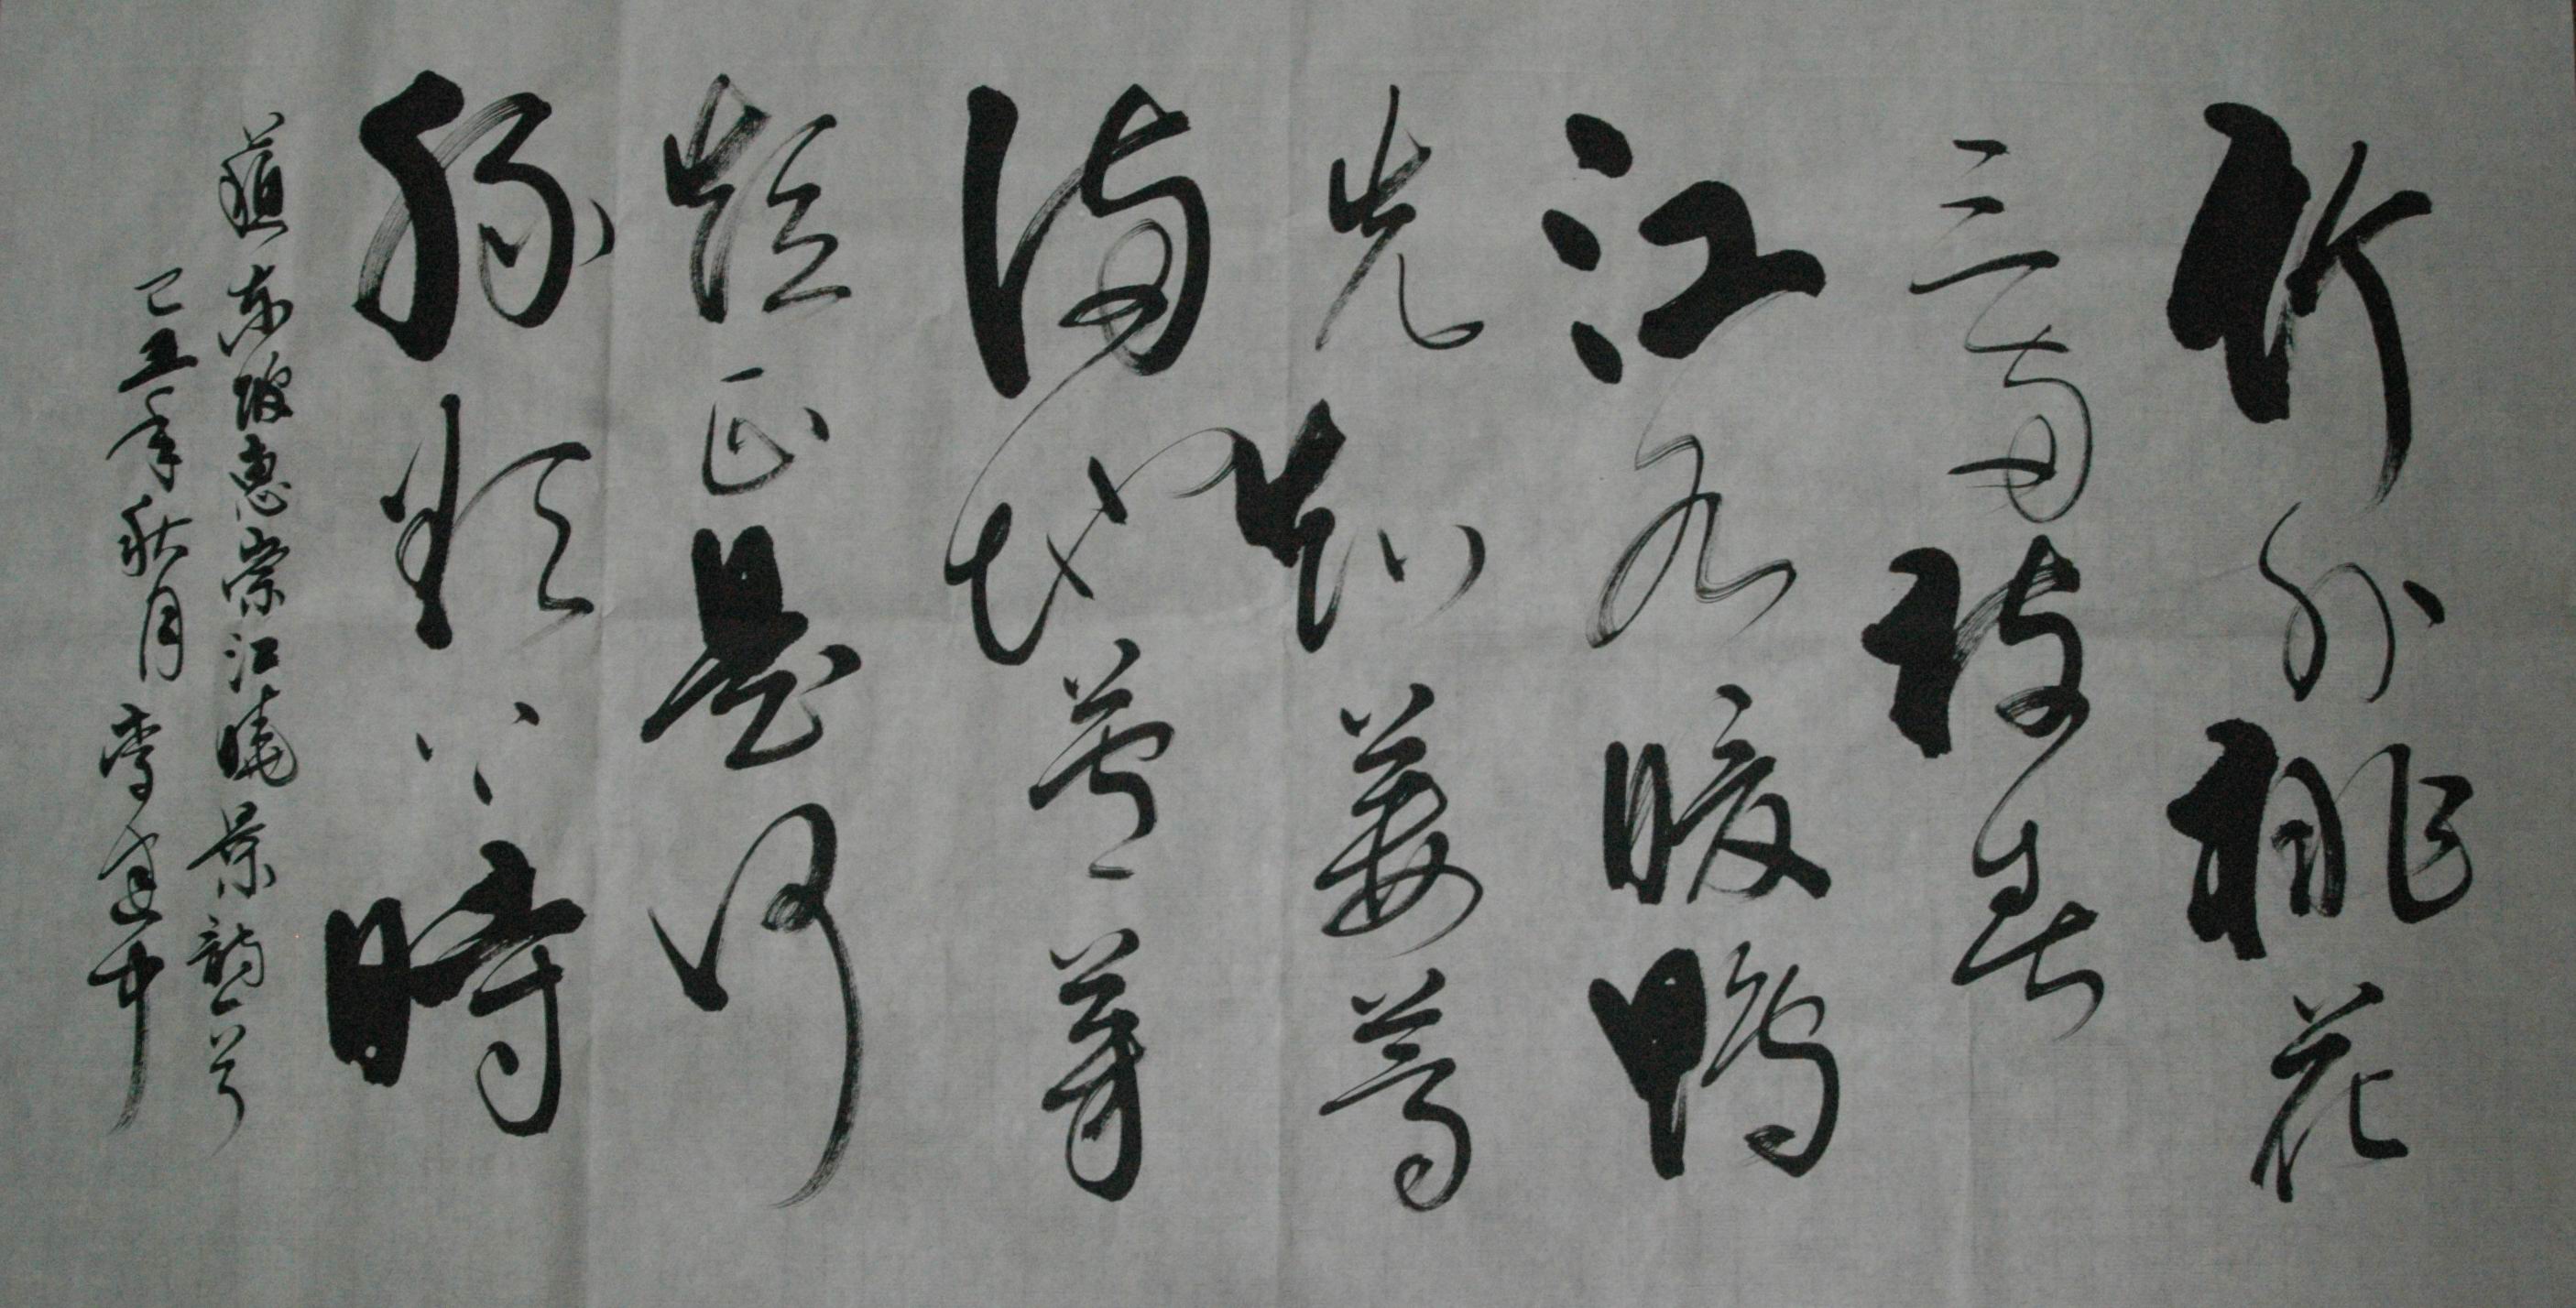 竹外桃花
三两枝春
江水暖鸭
先知蒌蒿
满地芦芽
短正是河
豚欲上時
蘇东坡惠崇江曉景韵一首
己丑年秋月李建中